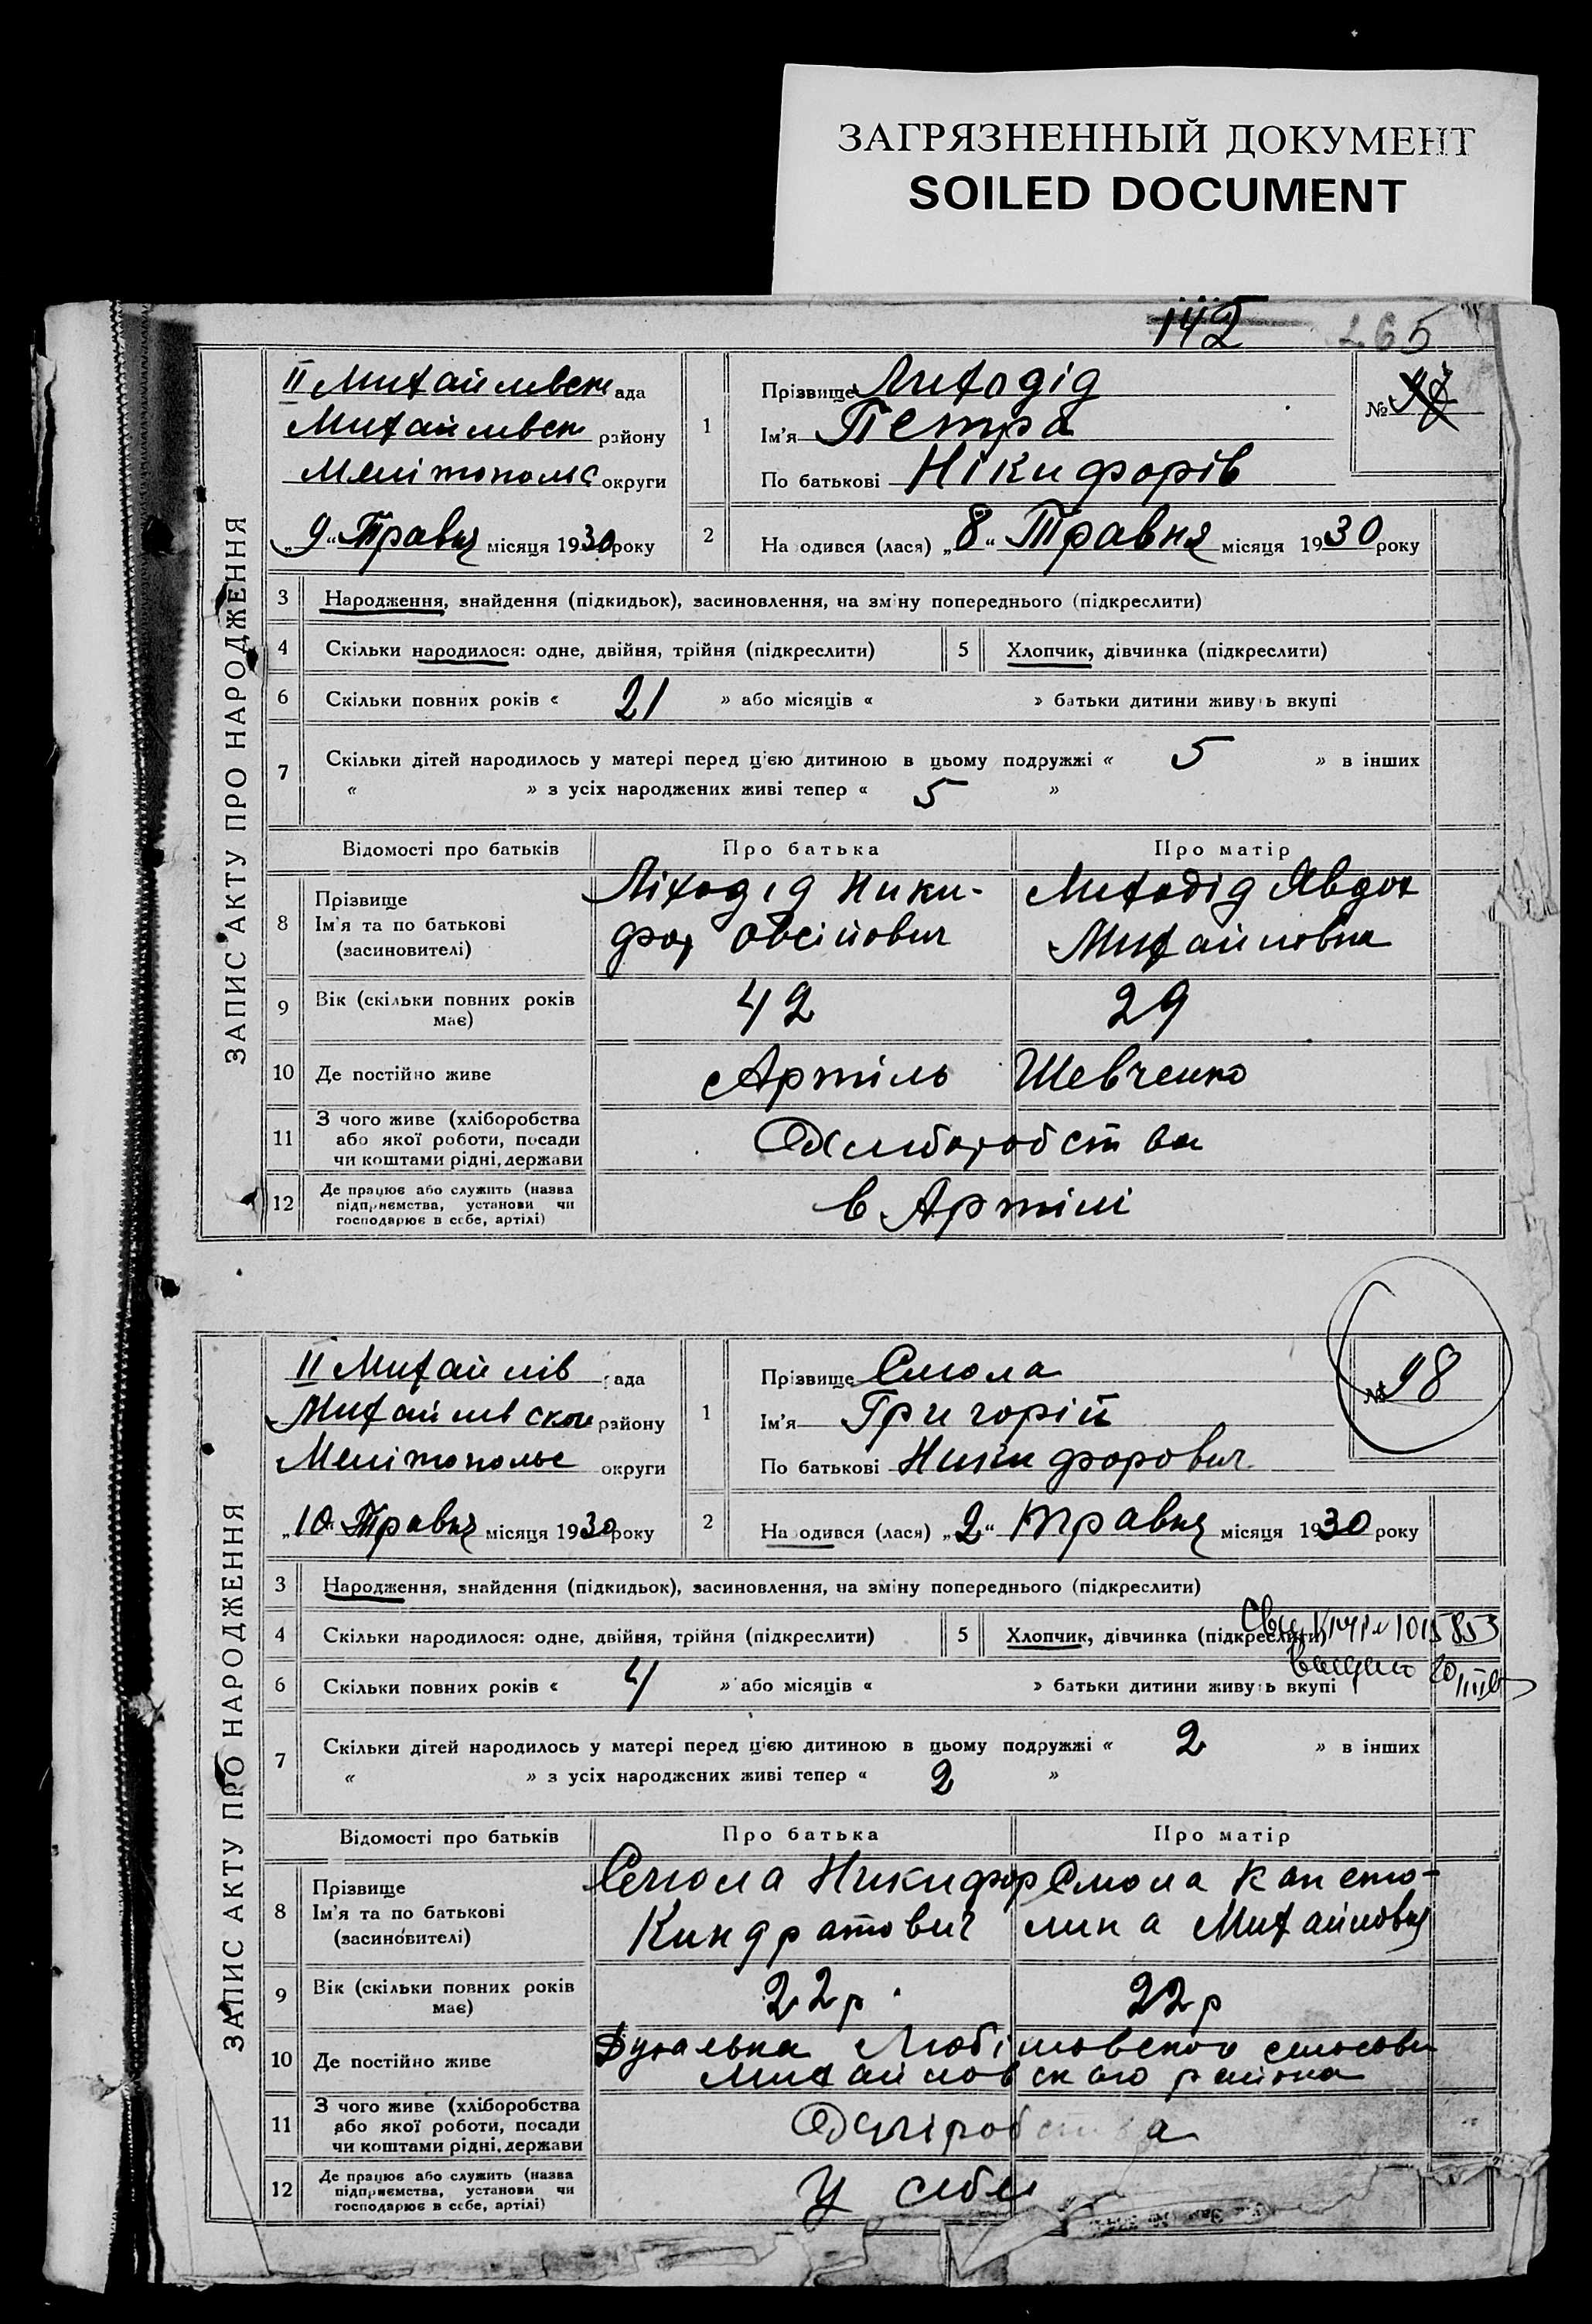 ЗАГРЯЗНЕННЫЙ ДОКУМЕНТ
SOILED DOCUMENT
142 265
ЗАПИС АКТУ ПРО НАРОДЖЕННЯ
II Михайлівськ рада
Михайлівськ району
Мелітопольс округи
„9“ Травня місяця 1930 року
1
Прізвище Лиходід
Ім'я Петра
По батькові Нікифорів
№ 97
2
Народився (лася) „8“ Травня місяця 1930 року
3 Народження, знайдення (підкидьок), засиновлення, на зміну попереднього (підкреслити)
4 Скільки народилося: одне, двійня, трійня (підкреслити) 5 Хлопчик, дівчинка (підкреслити)
6 Скільки повних років « 21 » або місяців « » батьки дитини живуть вкупі
7 Скільки дітей народилось у матері перед цією дитиною в цьому подружжі « 5 » в інших
« » з усіх народжених живі тепер « 5 »
Відомості про батьків Про батька Про матір
8 Прізвище
Ім'я та по батькові
(засиновителі)
Ліходід Ники-
фор Овсійович
Лиходід Явдох
Михайловна
9 Вік (скільки повних років має) 42 29
10 Де постійно живе Артіль Шевченко
11 З чого живе (хліборобства
або якої роботи, посади
чи коштами рідні, держави
12 Де працює або служить (назва
підприємства, установи чи
господарює в себе, артілі)
в Артілі
ЗАПИС АКТУ ПРО НАРОДЖЕННЯ
II Михайлів рада
Михайлівскои району
Мелітопольс округи
„10“ Травня місяця 1930 року
1
Прізвище Смола
Ім'я Григорій
По батькові Никифорович
№ 98
2
Народився (лася) „2“ травня місяця 1930 року
3 Народження, знайдення (підкидьок), засиновлення, на зміну попереднього (підкреслити)
4 Скільки народилося: одне, двійня, трійня (підкреслити) 5 Хлопчик, дівчинка (підкреслити)
1015853
6 Скільки повних років « 4 » або місяців « » батьки дитини живуть вкупі
7 Скільки дітей народилось у матері перед цією дитиною в цьому подружжі « 2 » в інших
« » з усіх народжених живі тепер « 2 »
Відомості про батьків Про батька Про матір
8 Прізвище
Ім'я та по батькові
(засиновителі)
Смола Никифор
Киндратович
Смола Капето-
лина Михайловня
9 Вік (скільки повних років має) 22 р. 22 р
10 Де постійно живе
Михайловского района
11 З чого живе (хліборобства
або якої роботи, посади
чи коштами рідні, держави
12 Де працює або служить (назва
підприємства, установи чи
господарює в себе, артілі)
У себе